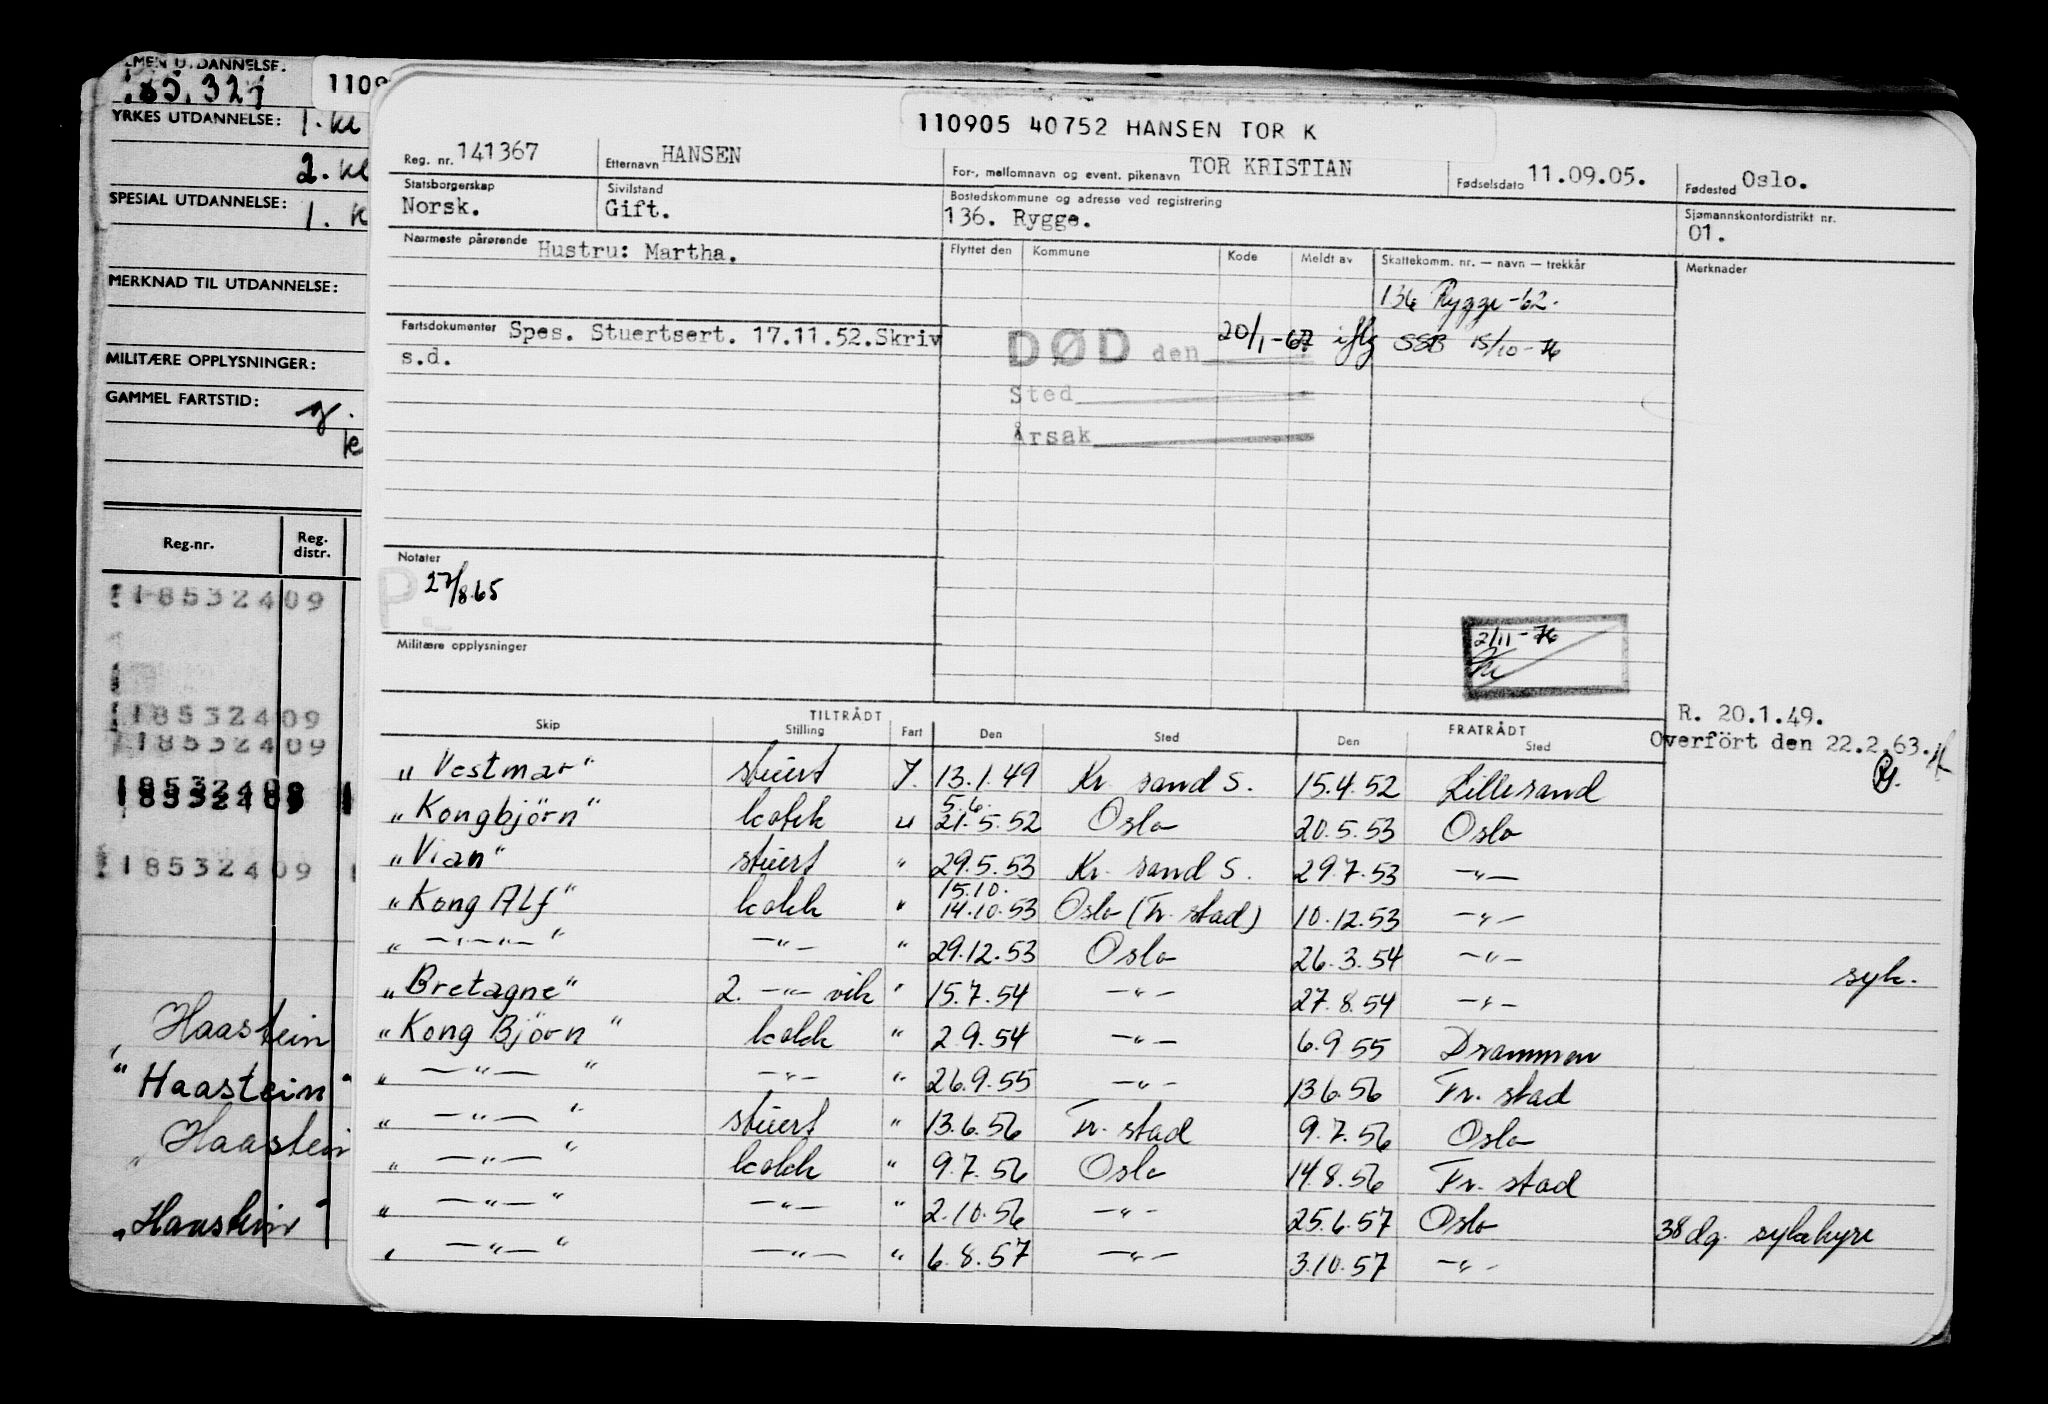 LMEN UTDANNELSE:
YRKES UTDANNELSE: 1. kl
2. kl
SPESIAL UTDANNELSE: 1. k
MERKNAD TIL UTDANNELSE:
MILITÆRE OPPLYSNINGER:
GAMMEL FARTSTID:
Reg.nr. Reg. distr.
18532409
18532409
18532409
18532409
18532409
Haastein
"Haastein"
Haastein
"Haastein"
110905 40752 HANSEN TOR K
Reg. nr. 141367 Etternavn HANSEN For-, mellomnavn og event. pikenavn TOR KRISTIAN Fødselsdato 11.09.05. Fødested Oslo.
Statsborgerskap Sivilstand Bostedskommune og adresse ved registrering Sjømannskontordistrikt nr.
Norsk. Gift. 136. Rygge. 01.
Nærmeste pårørende Hustru: Martha. Flyttet den Kommune Kode Meldt av Skattekomm. nr. — navn — trekkår Merknader
136 Rygge -62.
Fartsdokumenter Spes. Stuertsert. 17.11.52.Skriv
s.d.
DØD den 20/1-67 iflg SSB 15/10-76
Sted
Årsak
Notater
27/8.65
2/11-76
Militære opplysninger
R. 20.1.49.
Overfört den 22.2.63.
TILTRÅDT FRATRÅDT
Skip Stilling Fart Den Sted Den Sted
"Vestmar" stuert 13.1.49 Kr. sand S. 15.4.52 Lillesand
5.6.
"Kongbjörn" kokk " 21.5.52 Oslo 20.5.53 Oslo
"Vian" stuert " 29.5.53 Kr. sand S. 29.7.53 —"—
15.10.
"Kong Alf" kokk " 14.10.53 Oslo (Fr. stad) 10.12.53 —"—
" —"—"— " —"— " 29.12.53 Oslo 26.3.54 —"—
syk.
"Bretagne" 2. —"— vik " 15.7.54 —"— 27.8.54 —"—
"Kong Björn" kokk " 2.9.54 —"— 6.9.55 Drammen
" —"— " —"— " 26.9.55 —"— 13.6.56 Fr. stad
" —"— " stuert " 13.6.56 Fr. stad 9.7.56 Oslo
" —"— " kokk " 9.7.56 Oslo 14.8.56 Fr. stad
" —"— " —"— " 2.10.56 —"— 25.6.57 Oslo 38 dg. sykehyre
" —"— " —"— " 6.8.57 —"— 3.10.57 —"—